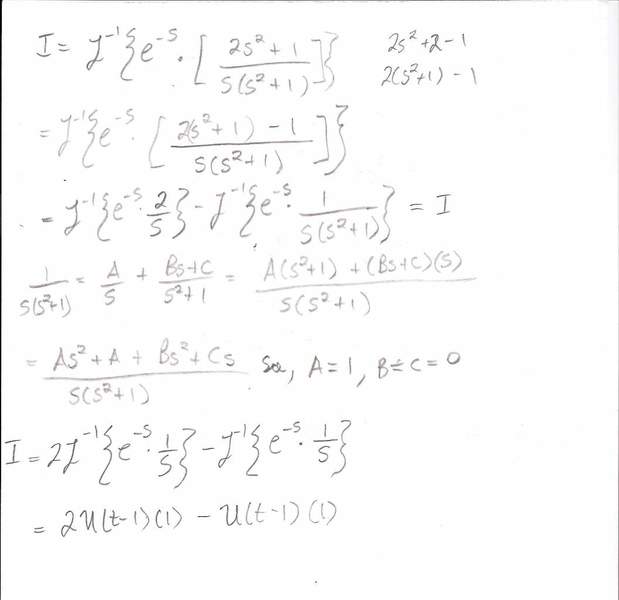 I = ℒ⁻¹{e⁻ˢ · [ (2s² + 1) / (s(s² + 1)) ]}
2s² + 2 - 1
2(s² + 1) - 1
= ℒ⁻¹{e⁻ˢ · [ (2(s² + 1) - 1) / (s(s² + 1)) ]}
= ℒ⁻¹{e⁻ˢ · 2/s} - ℒ⁻¹{e⁻ˢ · 1/(s(s² + 1))} = I
1/(s(s² + 1)) = A/s + (Bs + C)/(s² + 1) = (A(s² + 1) + (Bs + C)(s)) / (s(s² + 1))
= (As² + A + Bs² + Cs) / (s(s² + 1)) , A = 1, B = C = 0
I = 2ℒ⁻¹{e⁻ˢ · 1/s} - ℒ⁻¹{e⁻ˢ · 1/s}
= 2U(t-1)(1) - U(t-1)(1)